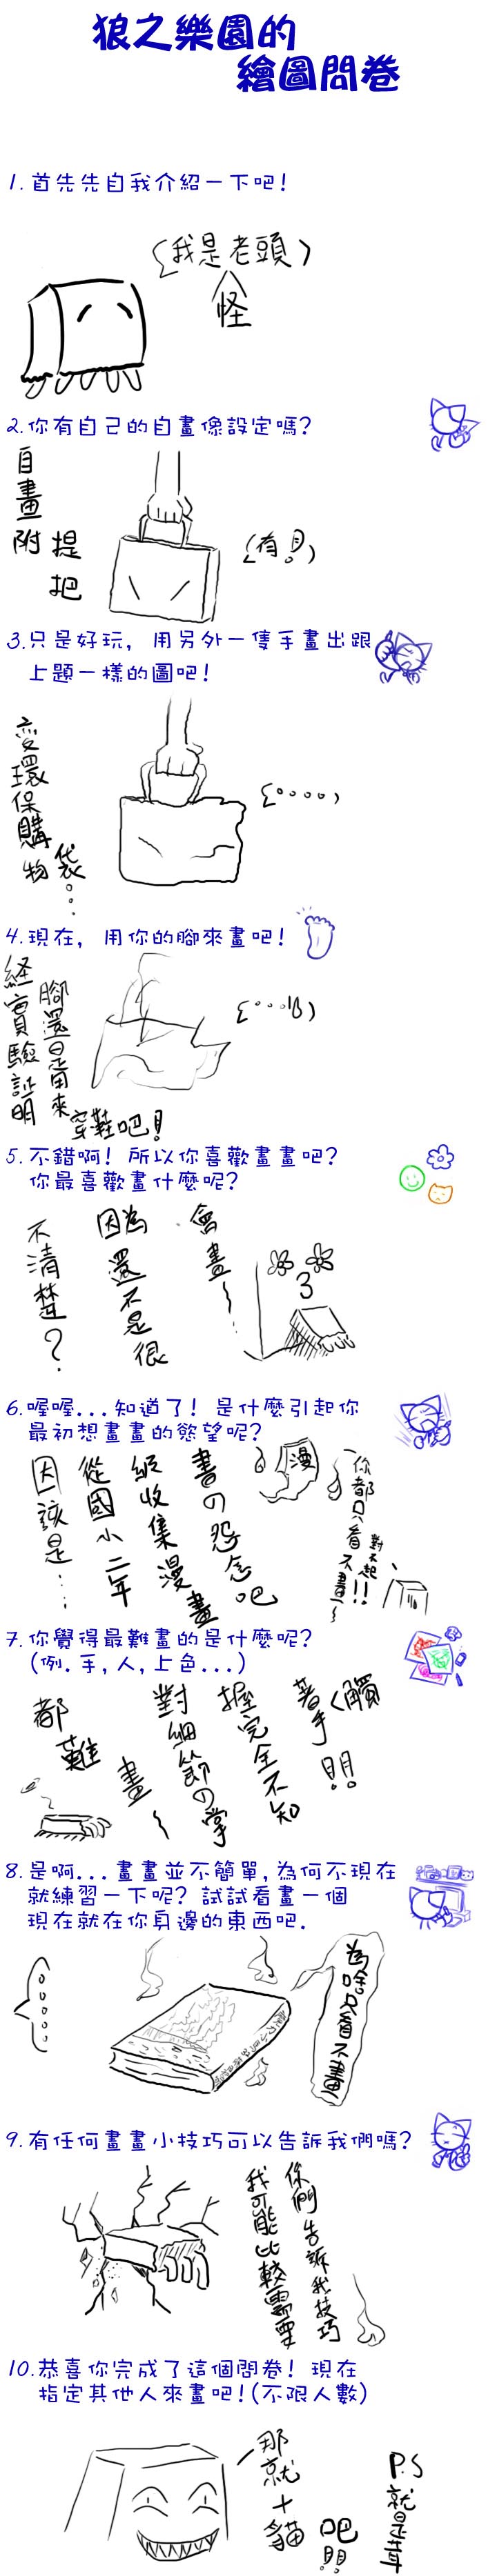 狼之樂園的
繪圖問卷
1.首先先自我介紹一下吧!
我是老頭
怪
2.你有自己的自畫像設定嗎?
自畫附
提把
有!!
3.只是好玩, 用另外一隻手畫出跟
上題一樣的圖吧!
愛環保購物
袋...
4.現在, 用你的腳來畫吧!
経實驗証明
腳還是用來
穿鞋吧!!
5.不錯啊! 所以你喜歡畫畫吧?
你最喜歡畫什麼呢?
不清楚?
因為還不是很
會畫~...
3
6.喔喔...知道了! 是什麼引起你
最初想畫畫的慾望呢?
因該是...
從國小二年
級收集漫畫
書の怨念吧
漫
你都只看不畫~
對不起!!
7.你覺得最難畫的是什麼呢?
(例.手,人,上色...)
都難畫~
對細節の掌
握完全不知
著手<觸
!!
8.是啊...畫畫並不簡單,為何不現在
就練習一下呢? 試試看畫一個
現在就在你身邊的東西吧.
為啥只看不畫
9.有任何畫畫小技巧可以告訴我們嗎?
我可能比較需要
你們告訴我技巧
10.恭喜你完成了這個問卷! 現在
指定其他人來畫吧!(不限人數)
那就+貓
吧!!
P.S就是茸